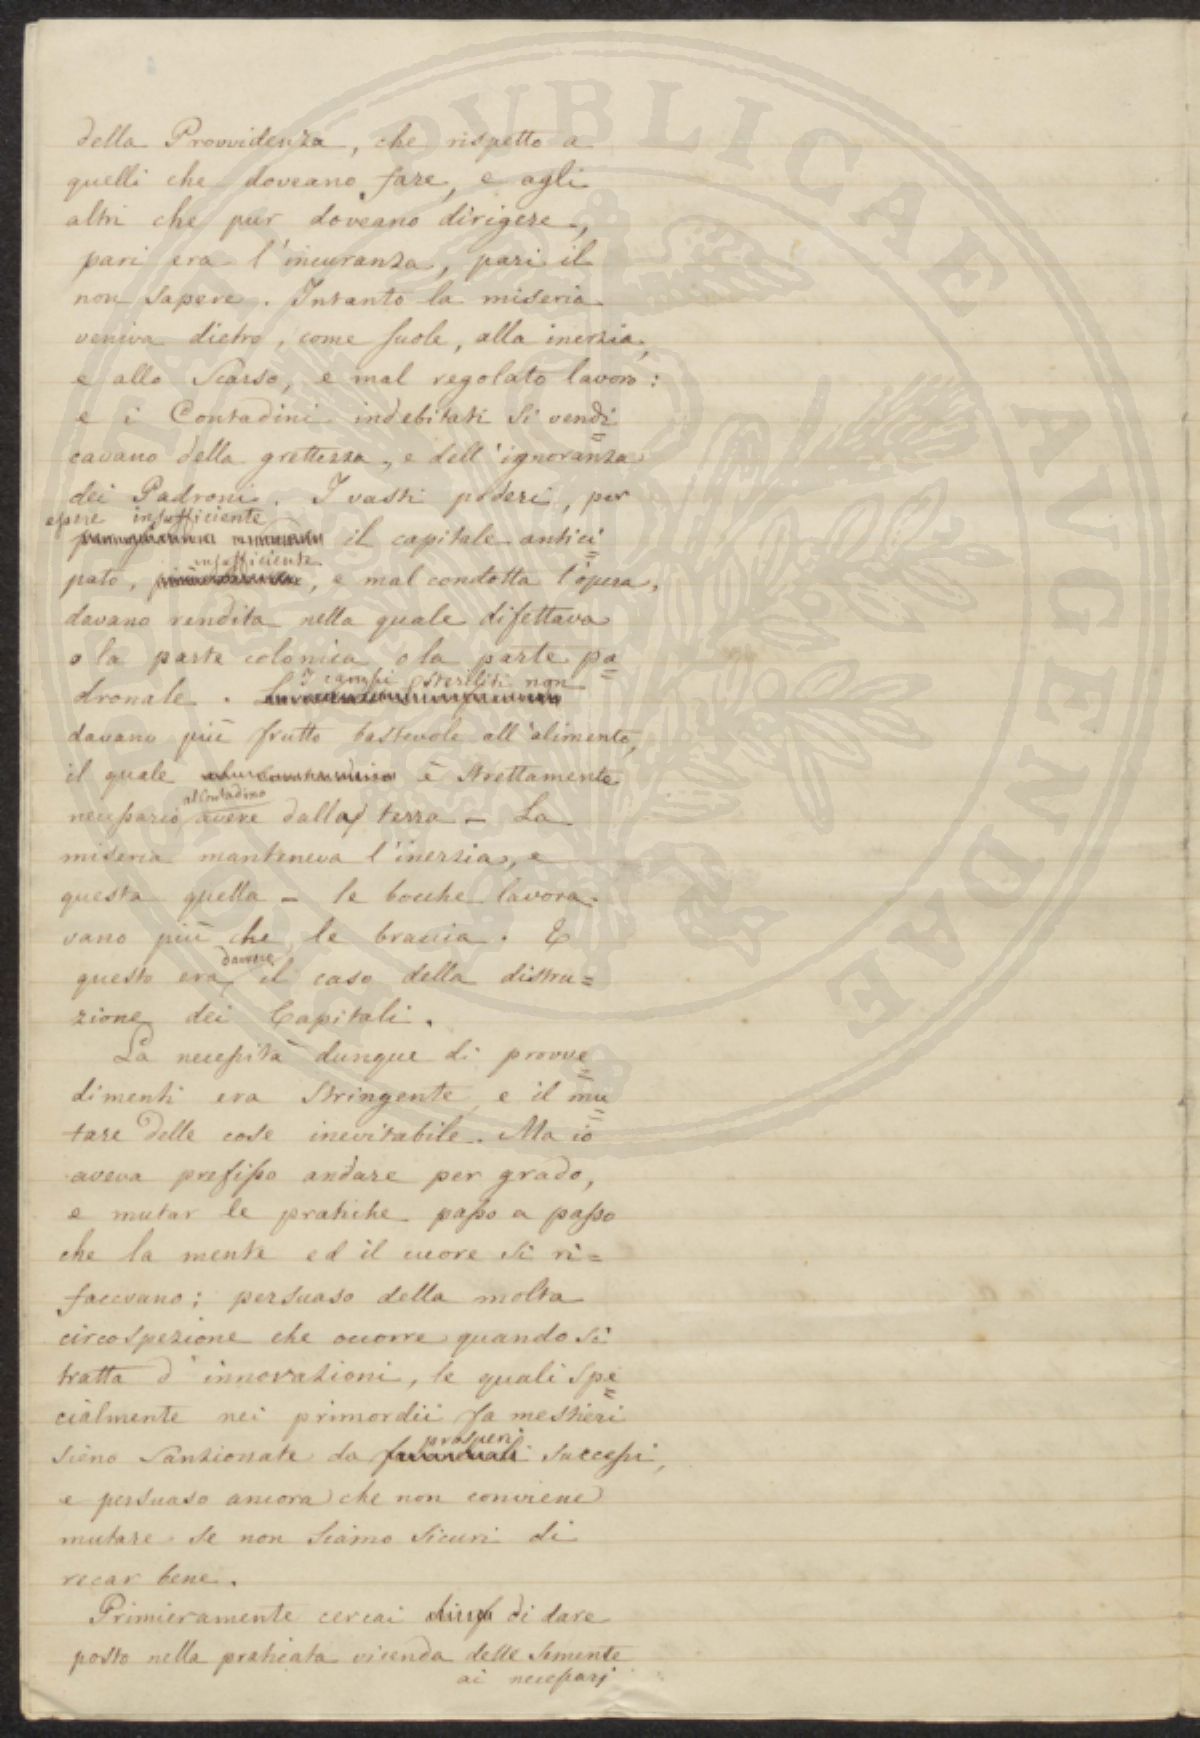 della Provvidenza, che rispetto a
quelli che doveano fare, e agli
altri che pur doveano dirigere,
pari era l'incuranza, pari il
non sapere. Intanto la miseria
veniva dietro, come suole, alla inerzia,
e allo scarso, e mal regolato lavoro:
e i Contadini indebitati si vendi
cavano della grettezza, e dell'ignoranza
dei Padroni. I vasti poderi, per
essere insufficiente
il capitale antici
insufficiente
pato, , e mal condotta l'opera,
davano rendita nella quale difettava
o la parte colonica o la parte pa
I campi steriliti non
dronale.
davano più frutto bastevole all'alimento,
il quale è strettamente
al Contadino
necessario avere dalla terra - La
miseria manteneva l'inerzia, e
questa quella - le bocche lavora-
vano più che le braccia. E
davvero
questo era il caso della distru=
zione dei Capitali.
La necessità dunque di provve
dimenti era stringente, e il mu
tare delle cose inevitabile. Ma io
aveva prefisso andare per grado,
e mutar le pratiche passo a passo
che la mente ed il cuore si ri=
facevano; persuaso della molta
circospezione che occorre quando si
tratta d'innovazioni, le quali spe
cialmente nei primordii fa mestieri
prosperi
sieno sanzionate da successi,
e persuaso ancora che non conviene
mutare se non siamo sicuri di
recar bene.
Primieramente cercai di dare
posto nella praticata vicenda delle semente
ai necessarj
PUBLICAE AUGENDAE